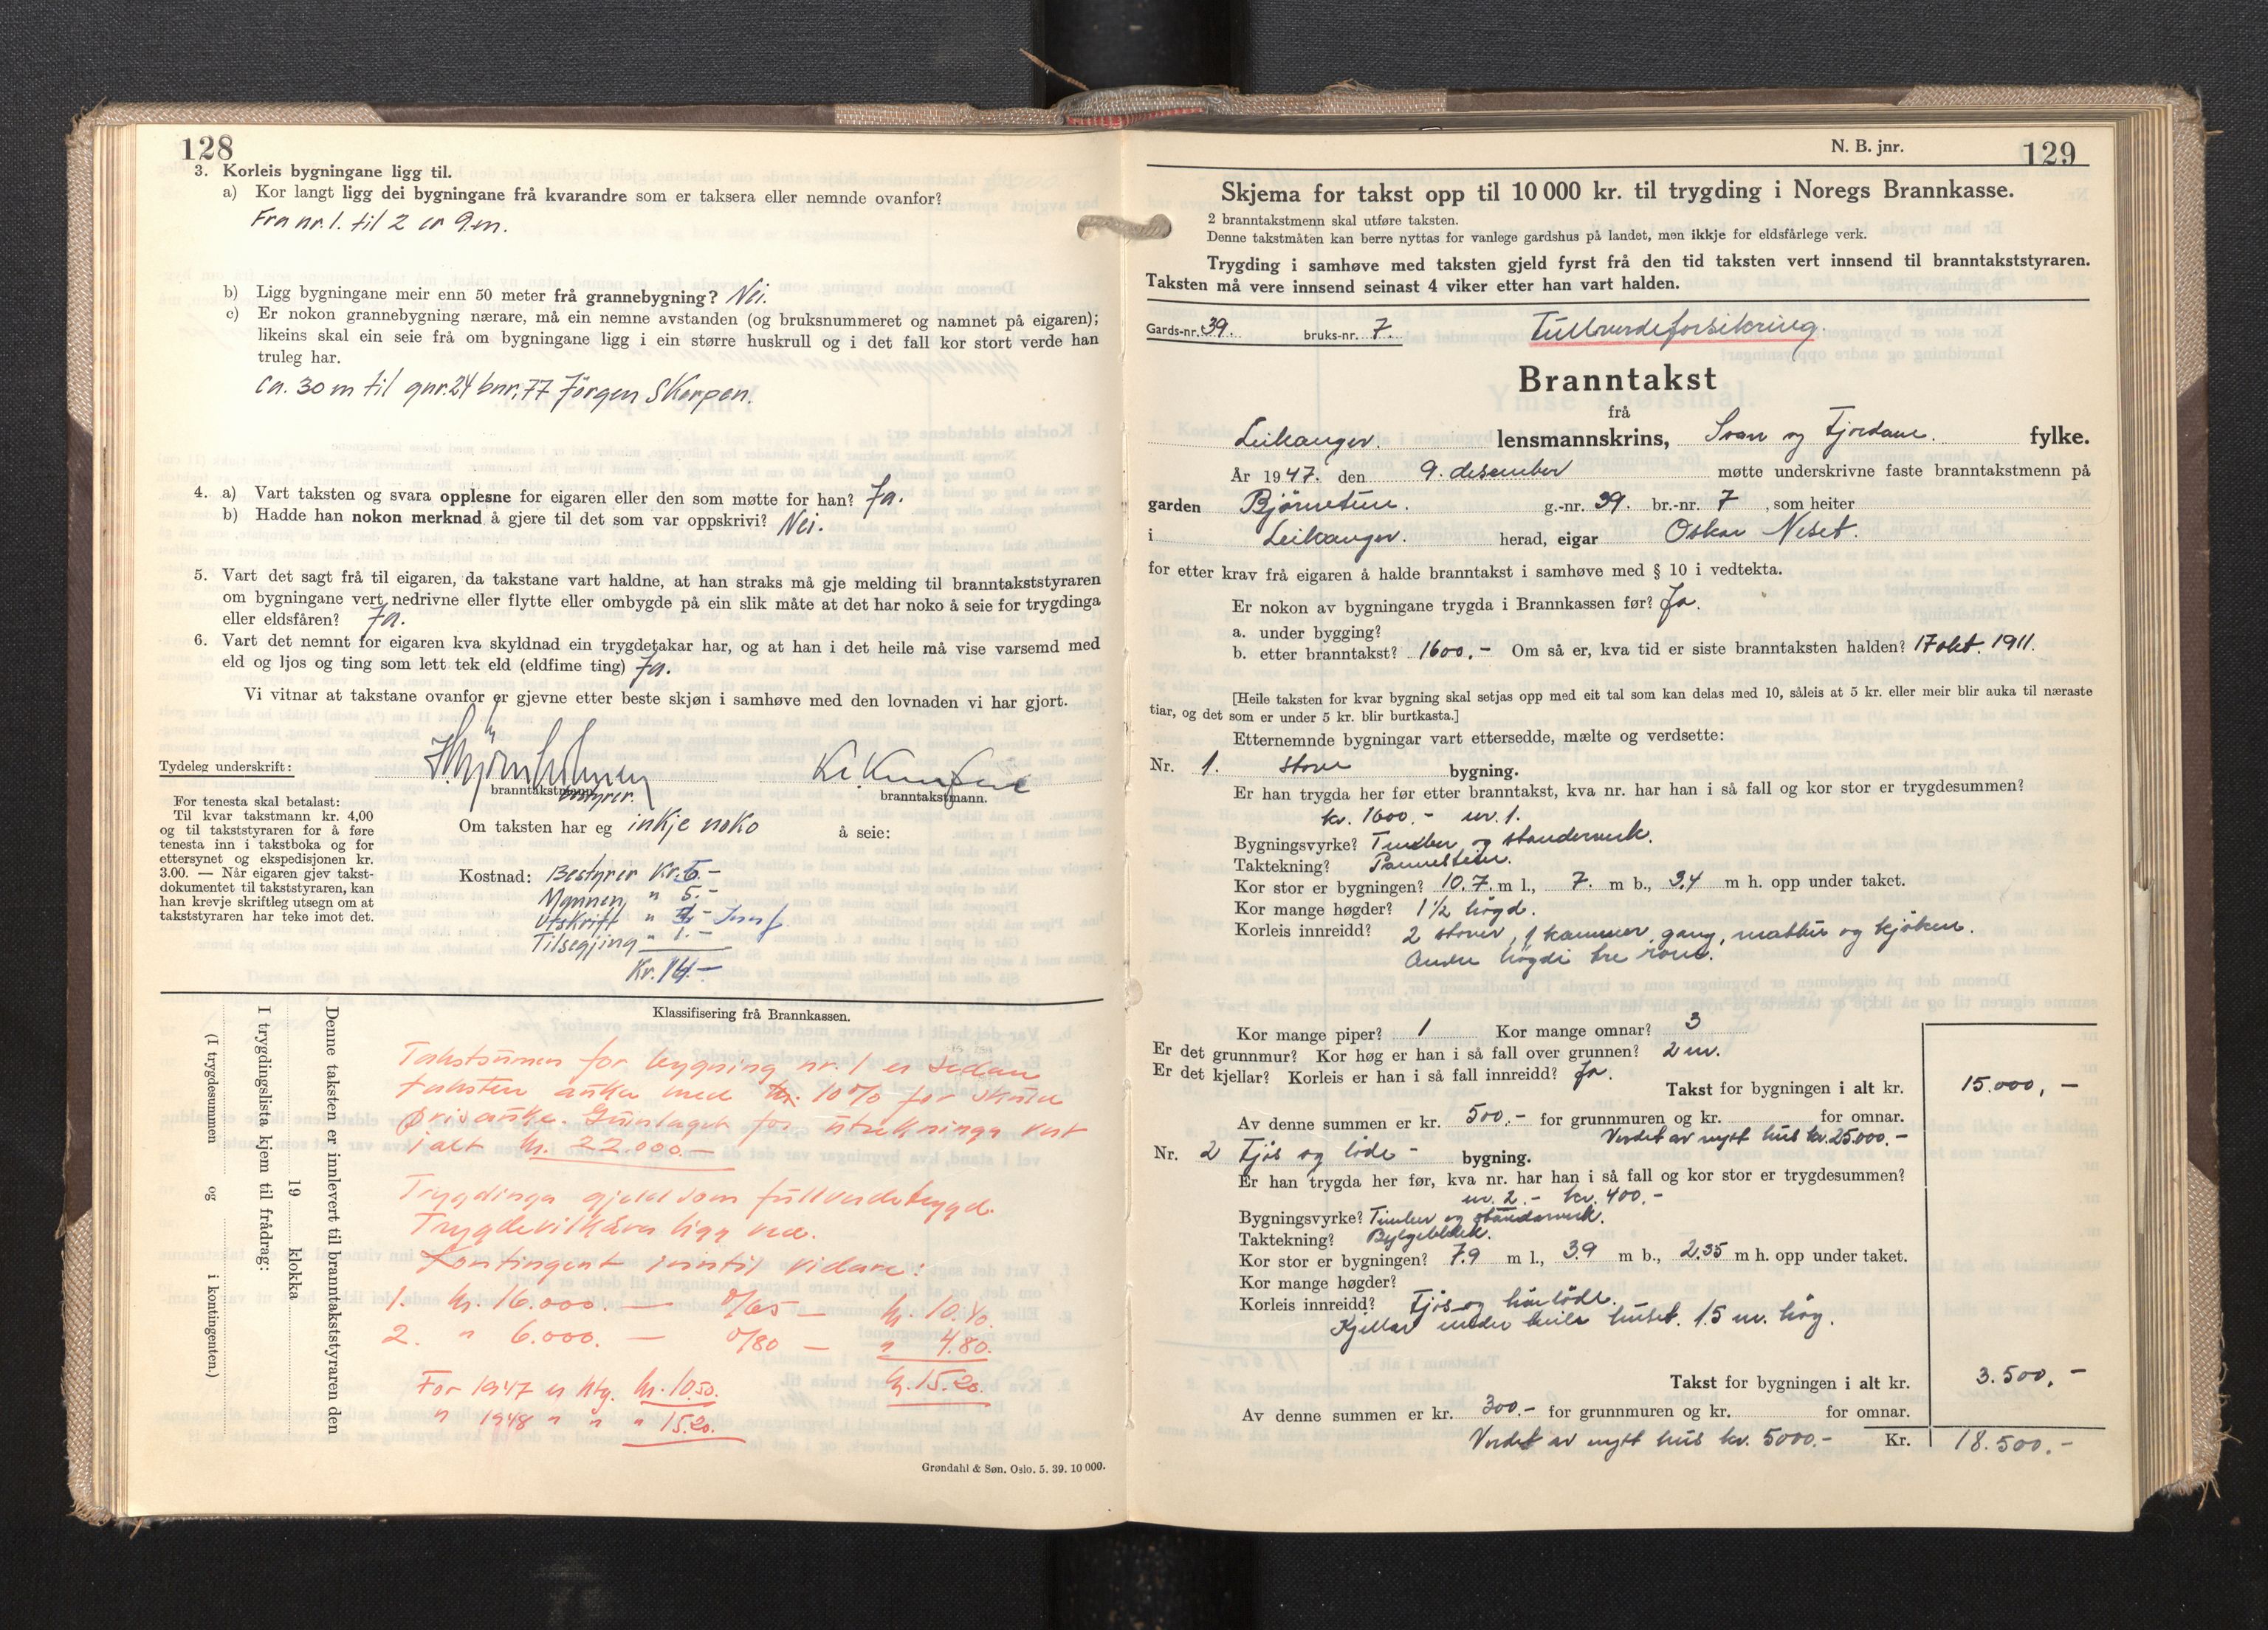 128
3. Korleis bygningane ligg til.
a) Kor langt ligg dei bygningane frå kvarandre som er taksera eller nemnde ovanfor?
Fra nr. 1. til 2 ca 9.m.
b) Ligg bygningane meir enn 50 meter frå grannebygning? Nei.
c) Er nokon grannebygning nærare, må ein nemne avstanden (og bruksnummeret og namnet på eigaren);
likeins skal ein seie frå om bygningane ligg i ein større huskrull og i det fall kor stort verde han
truleg har.
Ca. 30 m til gnr. 24 bnr. 77 Jörgen Skarpen.
4. a) Vart taksten og svara opplesne for eigaren eller den som møtte for han? Ja.
b) Hadde han nokon merknad å gjere til det som var oppskrivi? Nei.
5. Vart det sagt frå til eigaren, da takstane vart haldne, at han straks må gje melding til branntakststyraren
om bygningane vert nedrivne eller flytte eller ombygde på ein slik måte at det har noko å seie for trygdinga
eller eldsfåren? Ja.
6. Vart det nemnt for eigaren kva skyldnad ein trygdetakar har, og at han i det heile må vise varsemd med
eld og ljos og ting som lett tek eld (eldfime ting) Ja.
Vi vitnar at takstane ovanfor er gjevne etter beste skjøn i samhøve med den lovnaden vi har gjort.
Tydeleg underskrift:
branntakstmann. bestyrer.
branntakstmann.
For tenesta skal betalast:
Til kvar takstmann kr. 4,00
og til takststyraren for å føre
tenesta inn i takstboka og for
ettersynet og ekspedisjonen kr.
3.00. — Når eigaren gjev takst-
dokumentet til takststyraren, kan
han krevje skriftleg utsegn om at
takststyraren har teke imot det.
Om taksten har eg inkje noko å seie:
Kostnad: Bestyrer Kr. 5.-
Mannen " 5.-
Utskrift "
Tilsegjing " 1.-
Kr. 14.-
Klassifisering frå Brannkassen.
Takstsumen for bygning nr. 1 er sidan
taksten auka med kr. 10% for skula
prisauke. Grunlaget for utrekninga vert
i alt kr. 22.000.—
Trygdinga gjeld som fullverdetrygd.
Trygdevilkåra ligg ved.
Kontingent inntil vidare:
1. kr. 16.000. — º/65 — kr. 10.40.
2. " 6.000. — º/80 — " 4.80.
kr. 15.20.
For 1947 er ktg. kr. 10.50.
" 1948 " " " 15.20.
Denne taksten er innlevert til branntakststyraren den
19 klokka
I trygdingslista kjem til frådrag:
(I trygdesummen og i kontingenten.)
Grøndahl & Søn. Oslo. 5. 39. 10 000.
N. B. jnr. 129
Skjema for takst opp til 10 000 kr. til trygding i Noregs Brannkasse.
2 branntakstmenn skal utføre taksten.
Denne takstmåten kan berre nyttas for vanlege gardshus på landet, men ikkje for eldsfårlege verk.
Trygding i samhøve med taksten gjeld fyrst frå den tid taksten vert innsend til branntakststyraren.
Taksten må vere innsend seinast 4 viker etter han vart halden.
Gards-nr. 39. bruks-nr. 7. Fullverdeforsikring.
Branntakst
frå
Leikanger. lensmannskrins, Sogn og Fjordane. fylke.
År 1947. den 9. desember møtte underskrivne faste branntakstmenn på
garden Bjørnetun. g.-nr. 39. br.-nr. 7, som heiter
i Leikanger. herad, eigar Oskar Neset.
for etter krav frå eigaren å halde branntakst i samhøve med § 10 i vedtekta.
Er nokon av bygningane trygda i Brannkassen før? Ja.
a. under bygging?
b. etter branntakst? 1600.- Om så er, kva tid er siste branntaksten halden? 17 okt. 1911.
[Heile taksten for kvar bygning skal setjas opp med eit tal som kan delas med 10, såleis at 5 kr. eller meir blir auka til næraste
tiar, og det som er under 5 kr. blir burtkasta.]
Etternemnde bygningar vart ettersedde, mælte og verdsette:
Nr. 1. Stove bygning.
Er han trygda her før etter branntakst, kva nr. har han i så fall og kor stor er trygdesummen?
kr. 1600.- nr. 1.
Bygningsvyrke? Timber og standerverk.
Taktekning? Pannestein.
Kor stor er bygningen? 10.7. m l., 7. m b., 3.4 m h. opp under taket.
Kor mange høgder? 1½ högd.
Korleis innreidd? 2 stover, 1 kammer, gang, matbu og kjöken.
Andre högdi tre rom.
Kor mange piper? 1 Kor mange omnar? 3
Er det grunnmur? Kor høg er han i så fall over grunnen? 2 m.
Er det kjellar? Korleis er han i så fall innreidd? Ja.
Takst for bygningen i alt kr. 15.000,-
Av denne summen er kr. 500.- for grunnmuren og kr. for omnar.
Verdet av nytt hus kr. 25.000.-
Nr. 2 Fjös og löde - bygning.
Er han trygda her før, kva nr. har han i så fall og kor stor er trygdesummen?
nr. 2.- kr. 400.-
Bygningsvyrke? Timber og standerverk.
Taktekning? Bylgeblekk.
Kor stor er bygningen? 7.9 m l., 3.9 m b., 2.35 m h. opp under taket.
Kor mange høgder?
Korleis innreidd? Fjös og höylöde.
Kjellar under heile huset. 1.5 m. hög.
Takst for bygningen i alt kr. 3.500,-
Av denne summen er kr. 300.- for grunnmuren og kr. for omnar.
Verdet av nytt hus kr. 5000.- Kr. 18.500.-